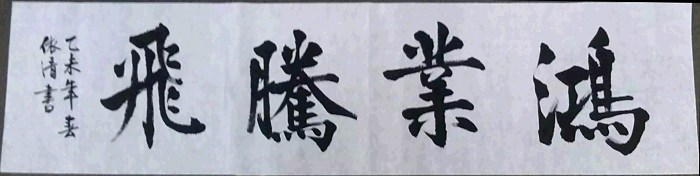 鴻業騰飛
乙未年春
依清書